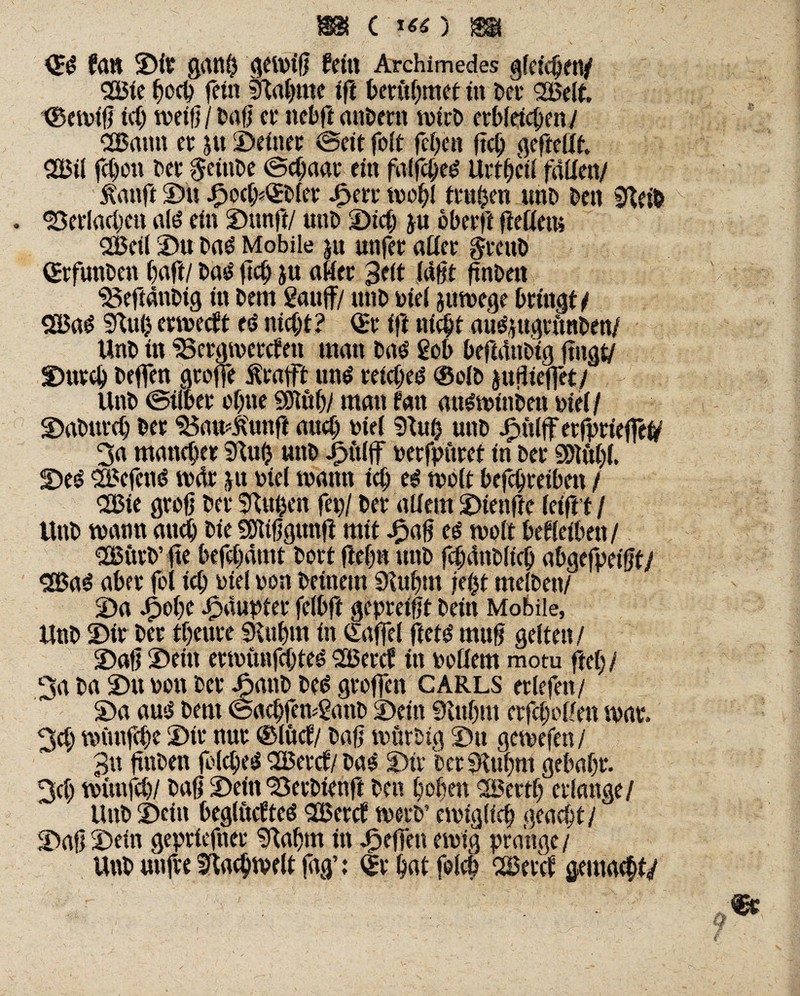 ( 166 )
Es kan Dir gantz gewiß kein Archimedes gleichen/
Wie hoch sein Nahme ist berühmet in der Welt.
Gewiß ich weiß / daß er nebst andern wird erbleichen /
Wann er zu Deiner Seit solt sehen sich gestellt.
Wil schon der Feinde Schaar ein falsches Urtheil fällen/
Kanst Du Hoch-Edler Herr wohl trutzen und den Neid
Verlachen als ein Dunst/ und Dich zu oberst stellen;
Weil Du das Mobile zu unser aller Freud
Erfunden hast/ das sich zu aller Zeit läßt finden
Beständig in dem Lauff/ und viel zuwege bringt /
Was Nutz erweckt es nicht? Er ist nicht auszugründen/
Und in Bergwercken man das Lob beständig singt/
Durch dessen grosse Krafft uns reiches Gold zufliesset /
Und Silber ohne Müh/ man kan auswinden viel /
Dadurch der Bau-Kunst auch viel Nutz und Hülff ersprießet/
Ja mancher Nutz und Hülff verspüret in der Mühl.
Des Wesens wär zu viel wann ich es wolt beschreiben /
Wie groß der Nutzen sey/ der allem Dienste leist't /
Und wann auch die Mißgunst mit Haß es wolt bekleiben /
Würd' sie beschämt dort stehn und schändlich abgespeißt/
Was aber sol ich viel von deinem Ruhm jetzt melden/
Da Hohe Häupter selbst gepreißt dein Mobile,
Und Dir der theure Ruhm in Cassel stets muß gelten /
Daß Dein erwünschtes Werck in vollem motu steh /
Ja da Du von der Hand des grossen CARLS erlesen /
Da aus dem Sachsen-Land Dein Ruhm erschollen war.
Ich wünsche Dir nur Glück/ daß würdig Du gewesen /
Zu finden solches Werck/ das Dir der Ruhm gebahr.
Ich wünsch/ daß Dein Verdienst den hohen Werth erlange /
Und Dein beglücktes Werck werd' ewiglich geacht /
Daß Dein gepriesner Nahm in Hessen ewig prange /
Und unsre Nachwelt sag': Er hat solch Werck gemacht/
Er